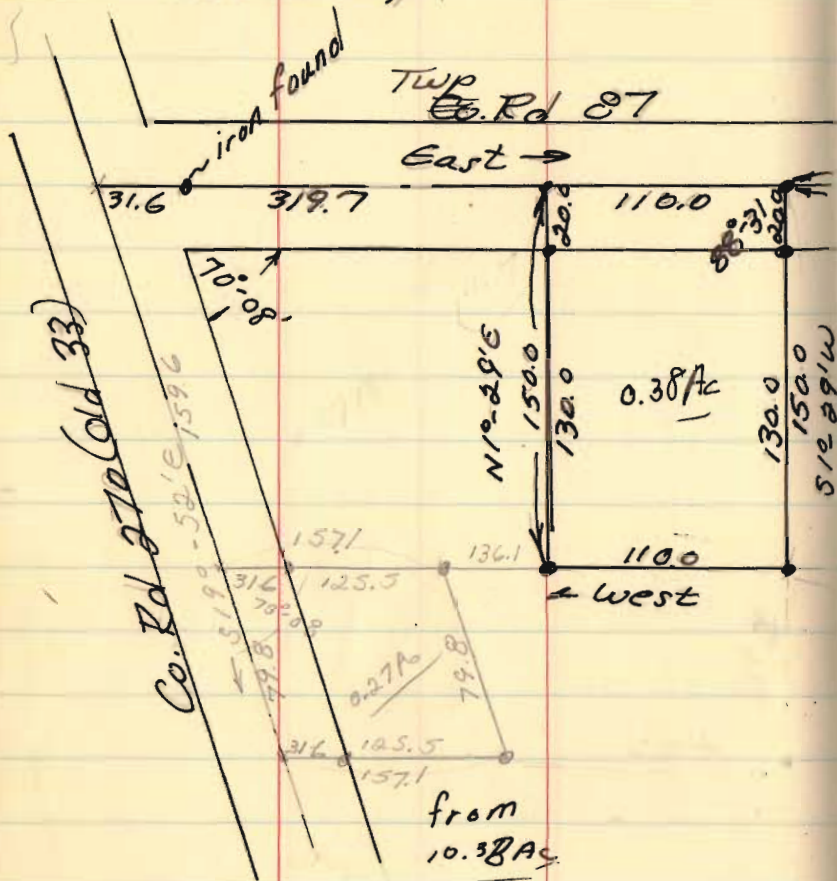 iron found
Twp
Co. Rd 87
East →
31.6 319.7 110.0
20.0 20.0
88°-31
70°-08
Co. Rd 270 (old 33)
S19°-52'E 159.6
N1°-29'E 150.0
130.0
0.38 Ac
130.0
150.0
S1°-29'W
157.1 136.1 110.0
31.6 125.5
← West
70°-08
79.8 0.27 Ac 79.8
31.6 125.5
157.1
from
10.38 Ac